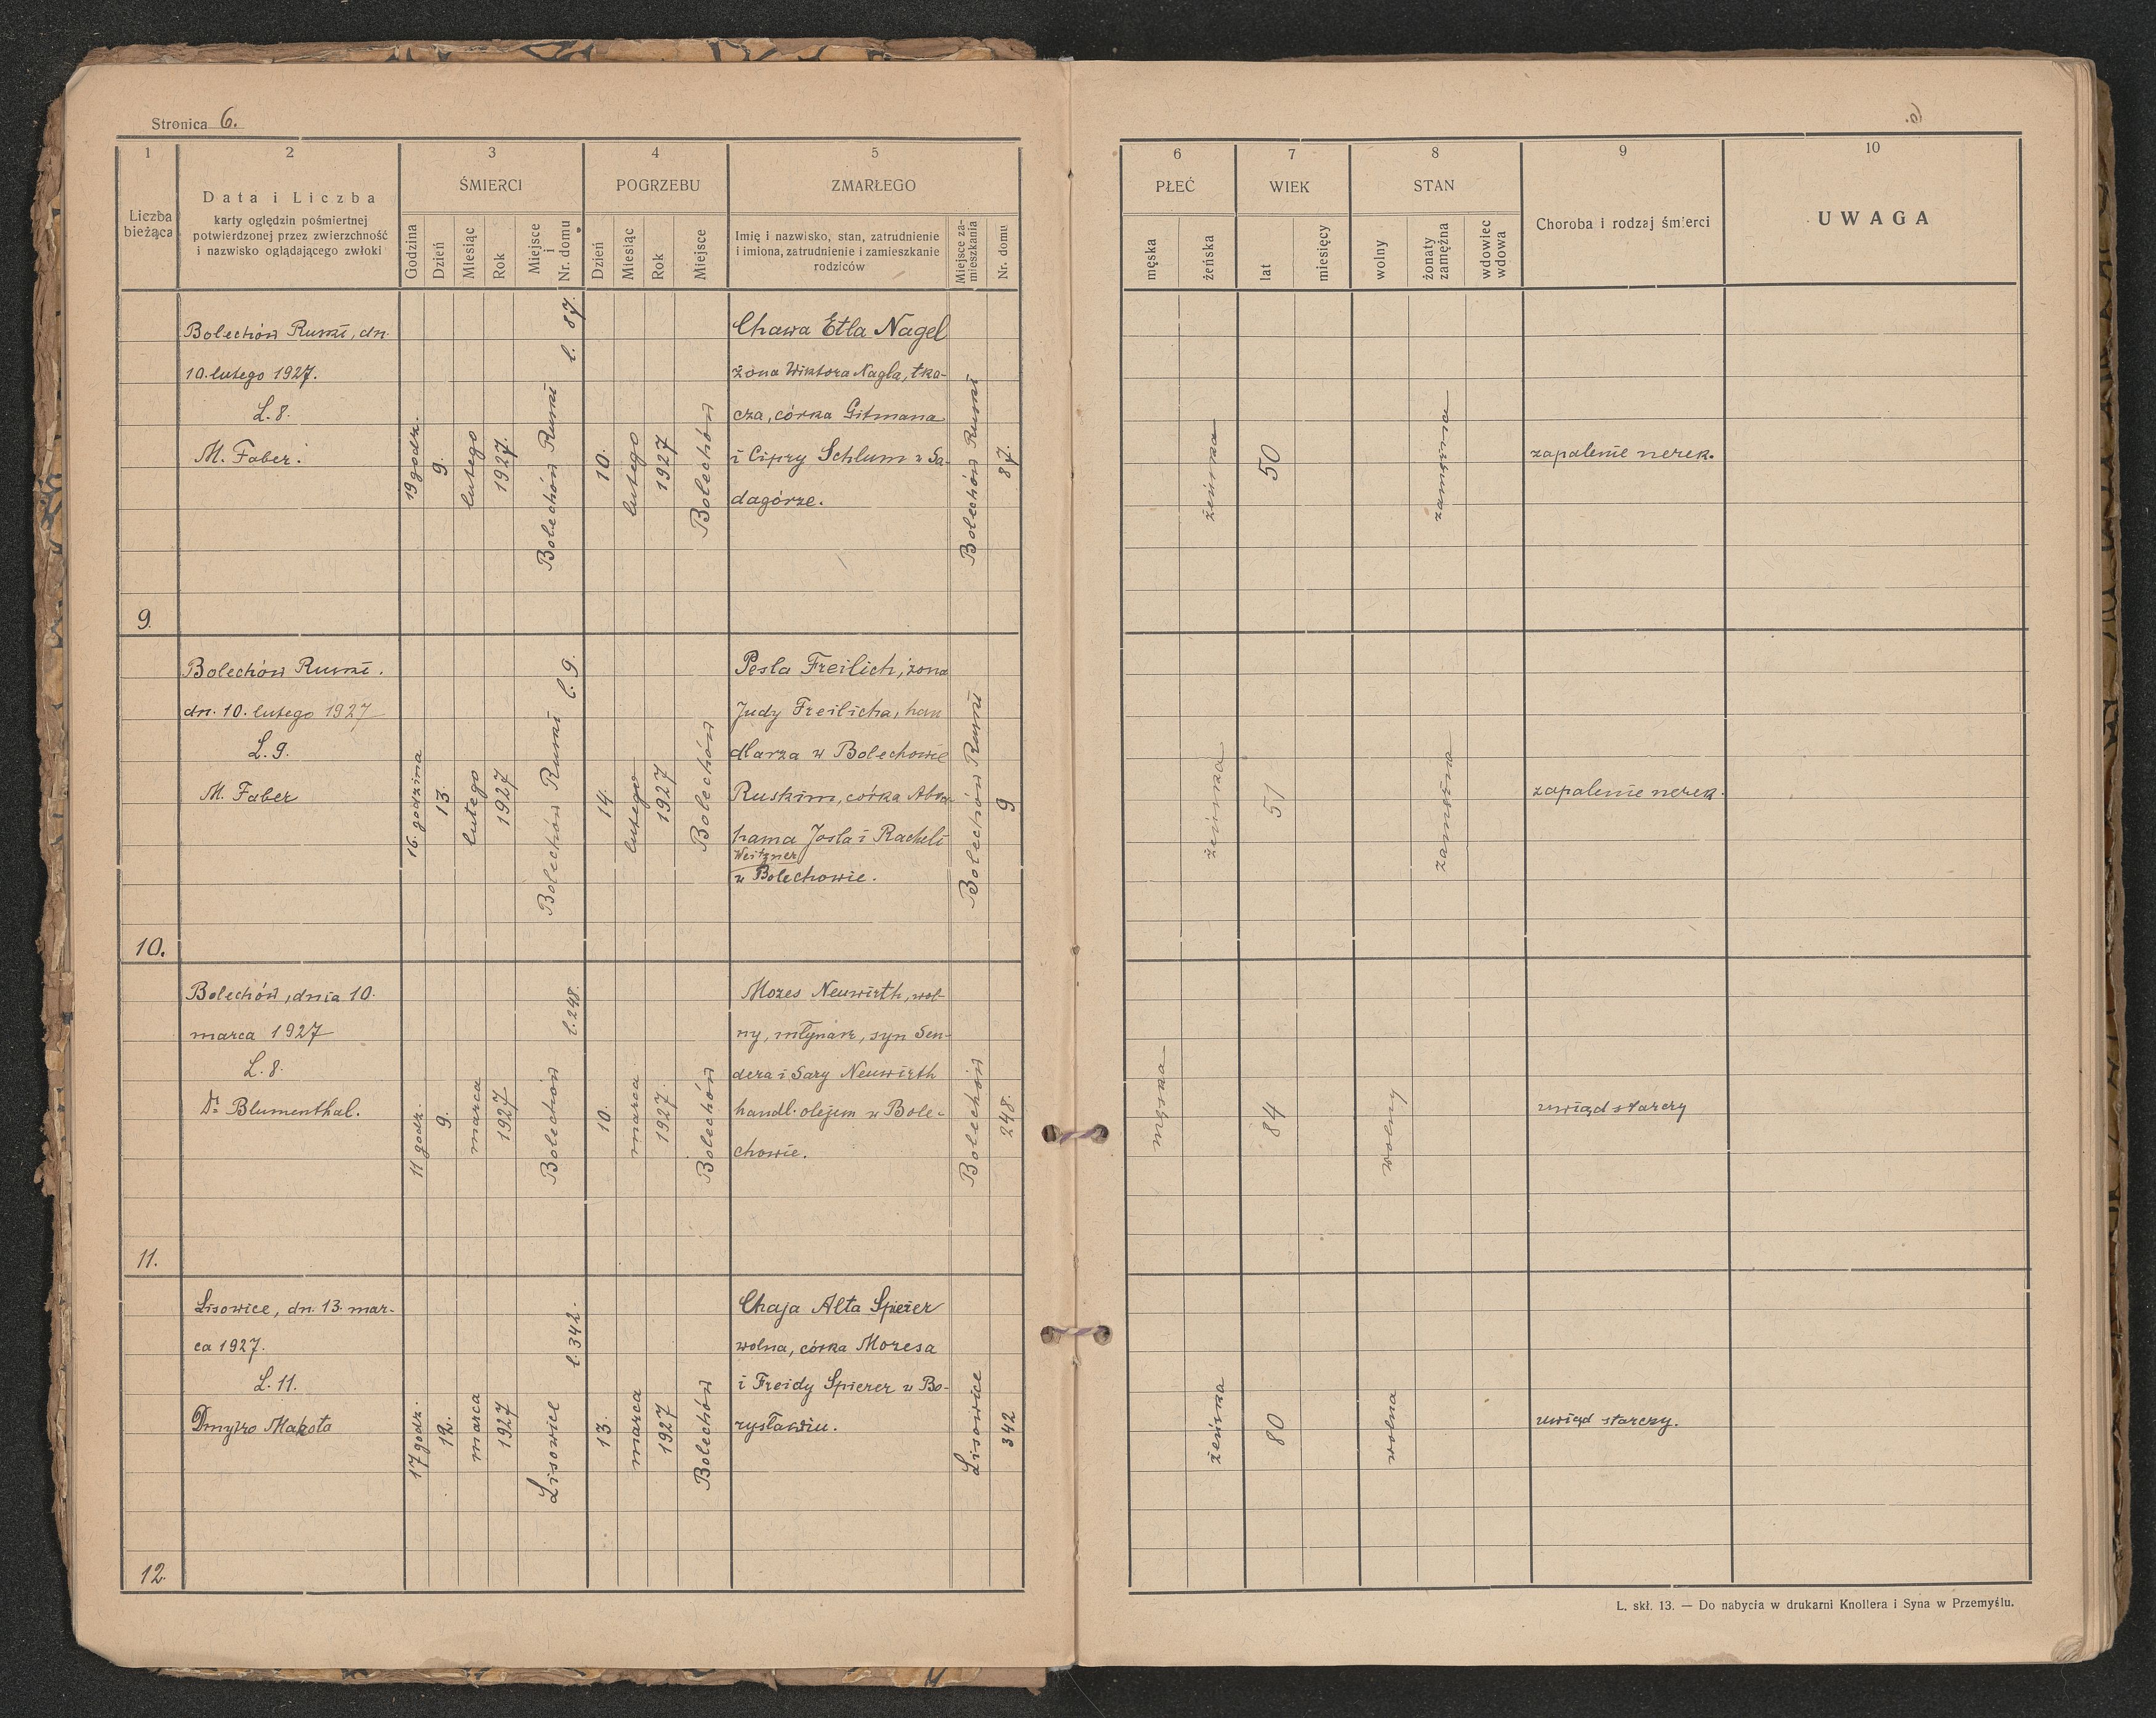 Stronica 6.
6.
1 2 3 4 5
6 7 8 9 10
Liczba bieżąca
Data i Liczba
karty oględzin pośmiertnej
potwierdzonej przez zwierzchność
i nazwisko oglądającego zwłoki
ŚMIERCI
Godzina
Dzień
Miesiąc
Rok
Miejsce i Nr. domu
POGRZEBU
Dzień
Miesiąc
Rok
Miejsce
ZMARŁEGO
Imię i nazwisko, stan, zatrudnienie
i imiona, zatrudnienie i zamieszkanie
rodziców
Miejsce za-
mieszkania
Nr. domu
PŁEĆ
męska
żeńska
WIEK
lat
miesięcy
STAN
wolny
żonaty
zamężna
wdowiec
wdowa
Choroba i rodzaj śmierci
UWAGA
9.
Bolechów Ruski, dn.
10. lutego 1927.
L. 8.
M. Faber.
19 godz.
9.
lutego
1927.
Bolechów Ruski l. 87.
10.
lutego
1927
Bolechów
Chawa Etla Nagel
żona Wiktora Nagla, tka-
cza, córka Gitmana
i Cipry Schlum w Sa-
dagórze.
Bolechów Ruski
87.
żeńska
50
zamężna
zapalenie nerek.
10.
Bolechów Ruski.
dn. 10. lutego 1927
L. 9.
M. Faber
16. godzina
13.
lutego
1927
Bolechów Ruski l. 9.
14.
lutego
1927
Bolechów
Pesla Freilich, żona
Judy Freilicha, han
dlarza w Bolechowie
Ruskim, córka Abra-
hama Josla i Racheli
Weitzner
w Bolechowie.
Bolechów Ruski
9
żeńska
51
zamężna
zapalenie nerek.
11.
Bolechów, dnia 10.
marca 1927
L. 8.
Dr. Blumenthal.
11 godz.
9.
marca
1927
Bolechów l. 248.
10.
marca
1927.
Bolechów
Mozes Neuwirth, wol-
ny, młynarz, syn Sen-
dera i Sary Neuwirth
handl. olejem w Bole-
chowie.
Bolechów
248.
męska
84
wolny
uwiąd starczy
12.
Lisowice, dn. 13. mar-
ca 1927.
L. 11.
Dmytro Makota
17 godz.
12.
marca
1927
Lisowice l. 342.
13.
marca
1927
Bolechów
Chaja Alta Spierer
wolna, córka Mozesa
i Freidy Spierer w Bo-
rysławiu.
Lisowice
342
żeńska
80
wolna
uwiąd starczy.
L. skł. 13. — Do nabycia w drukarni Knollera i Syna w Przemyślu.